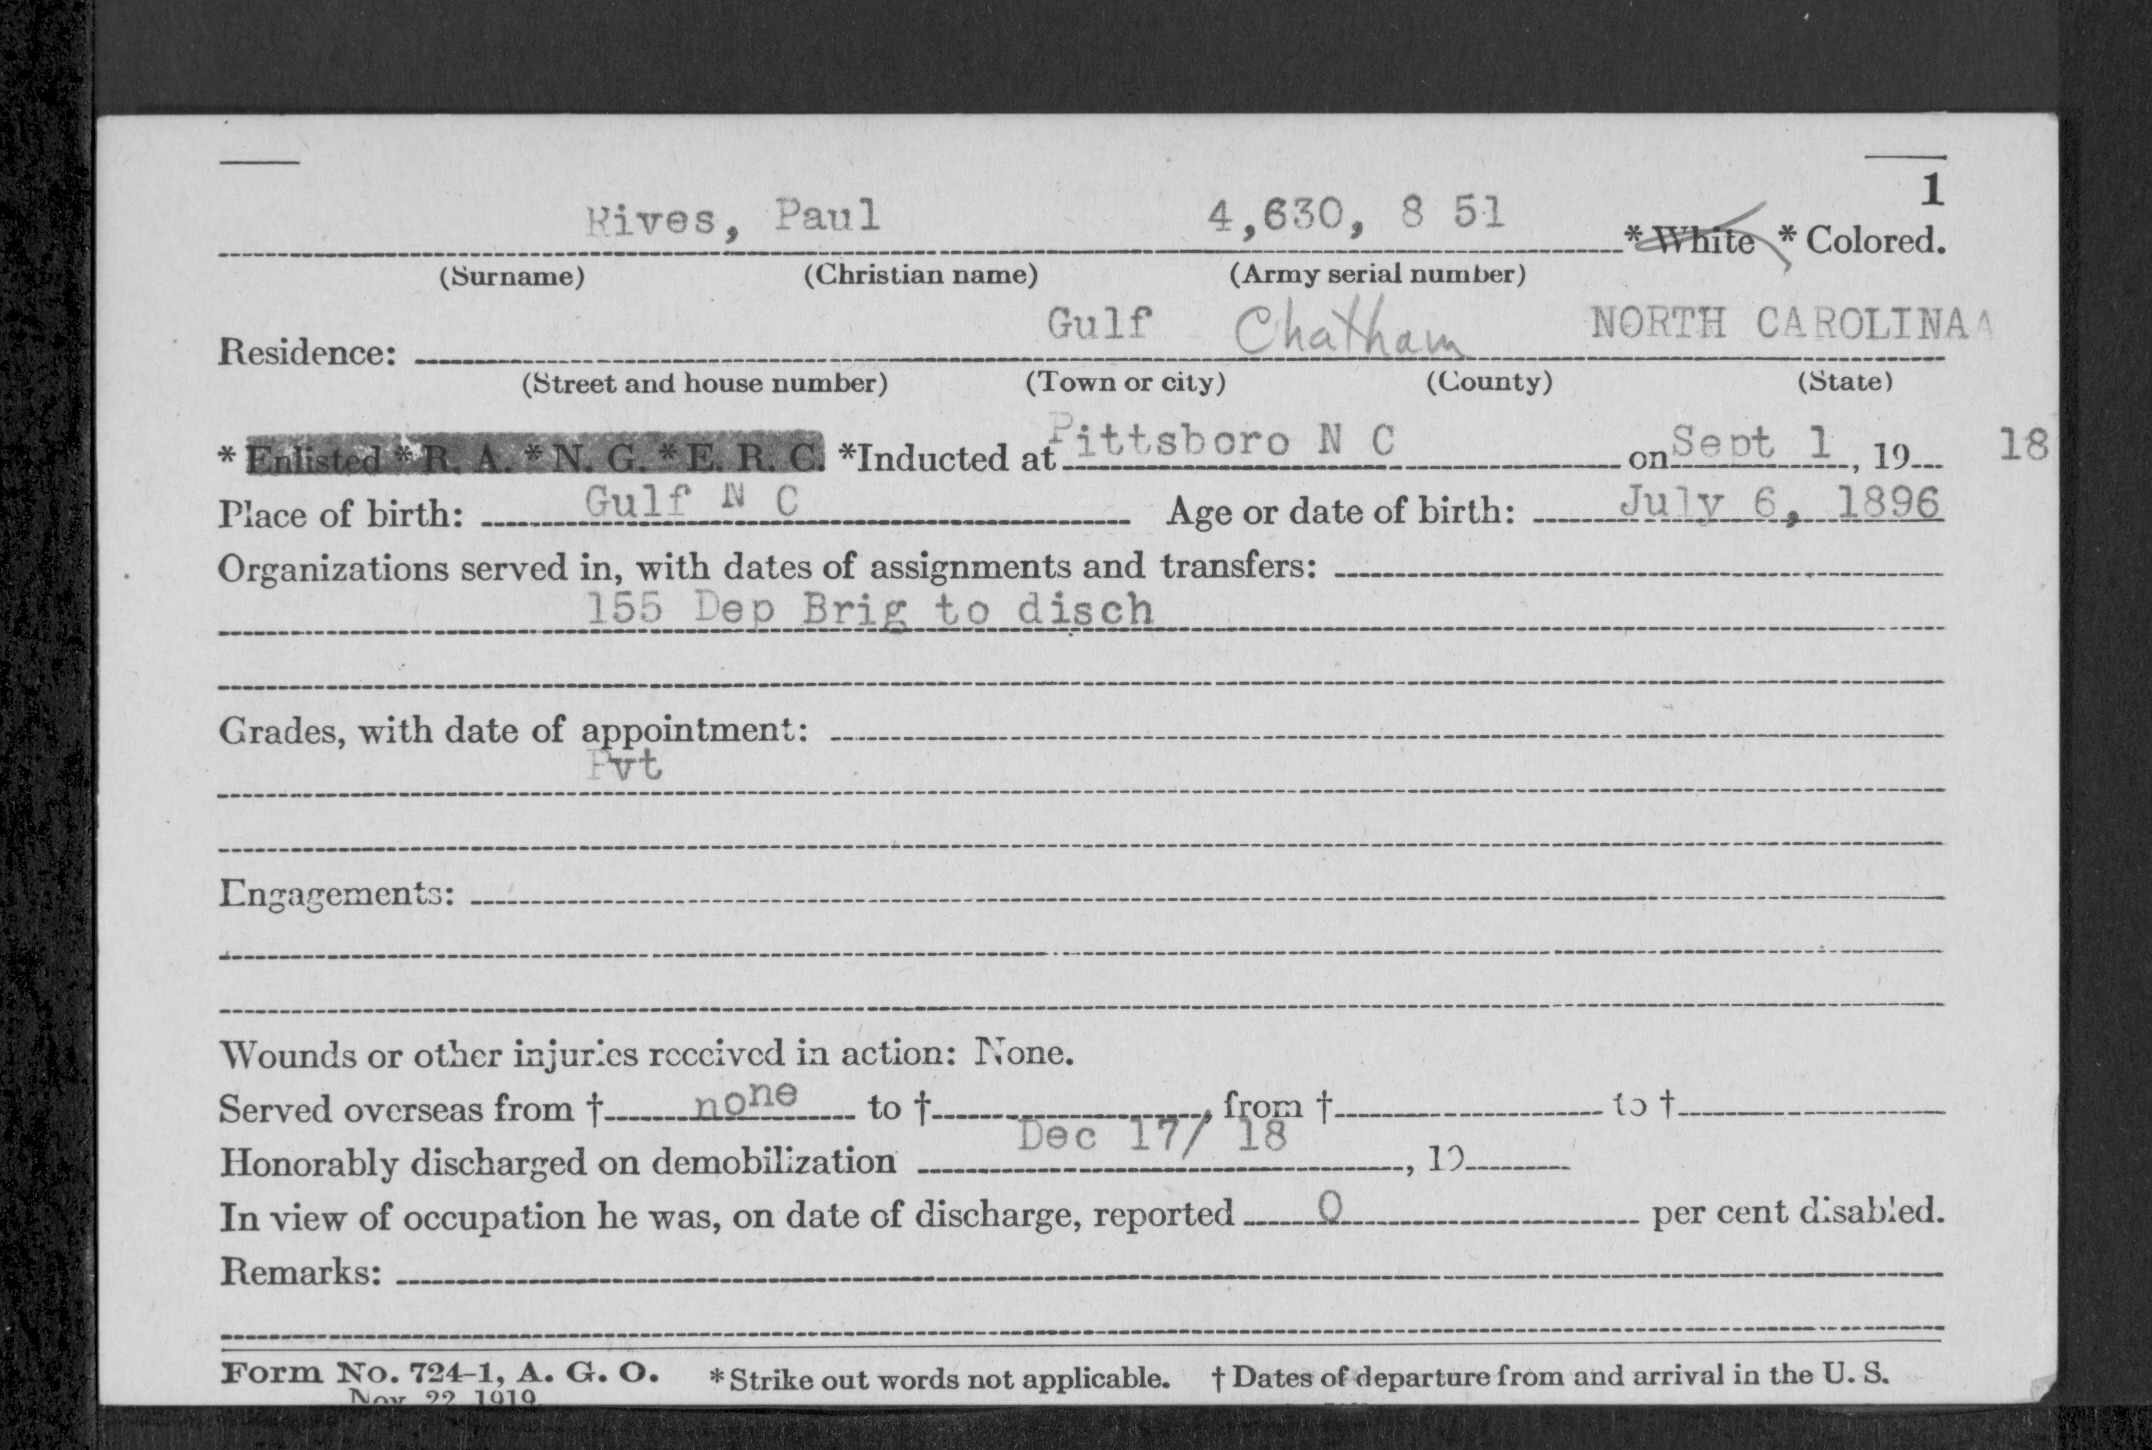 1
Rives, Paul 4,630, 8 51 *White *Colored.
(Surname) (Christian name) (Army serial number)
Residence: Gulf Chatham NORTH CAROLINA A
(Street and house number) (Town or city) (County) (State)
*Enlisted *R. A. *N. G. *E. R. C. *Inducted at Pittsboro N C on Sept 1, 19 18
Place of birth: Gulf N C Age or date of birth: July 6, 1896
Organizations served in, with dates of assignments and transfers:
155 Dep Brig to disch
Grades, with date of appointment:
Pvt
Engagements:
Wounds or other injuries received in action: None.
Served overseas from † none to †, from † to †
Honorably discharged on demobilization Dec 17/ 18, 19
In view of occupation he was, on date of discharge, reported 0 per cent disabled.
Remarks:
Form No. 724-1, A. G. O. *Strike out words not applicable. † Dates of departure from and arrival in the U. S.
Nov. 22 1919